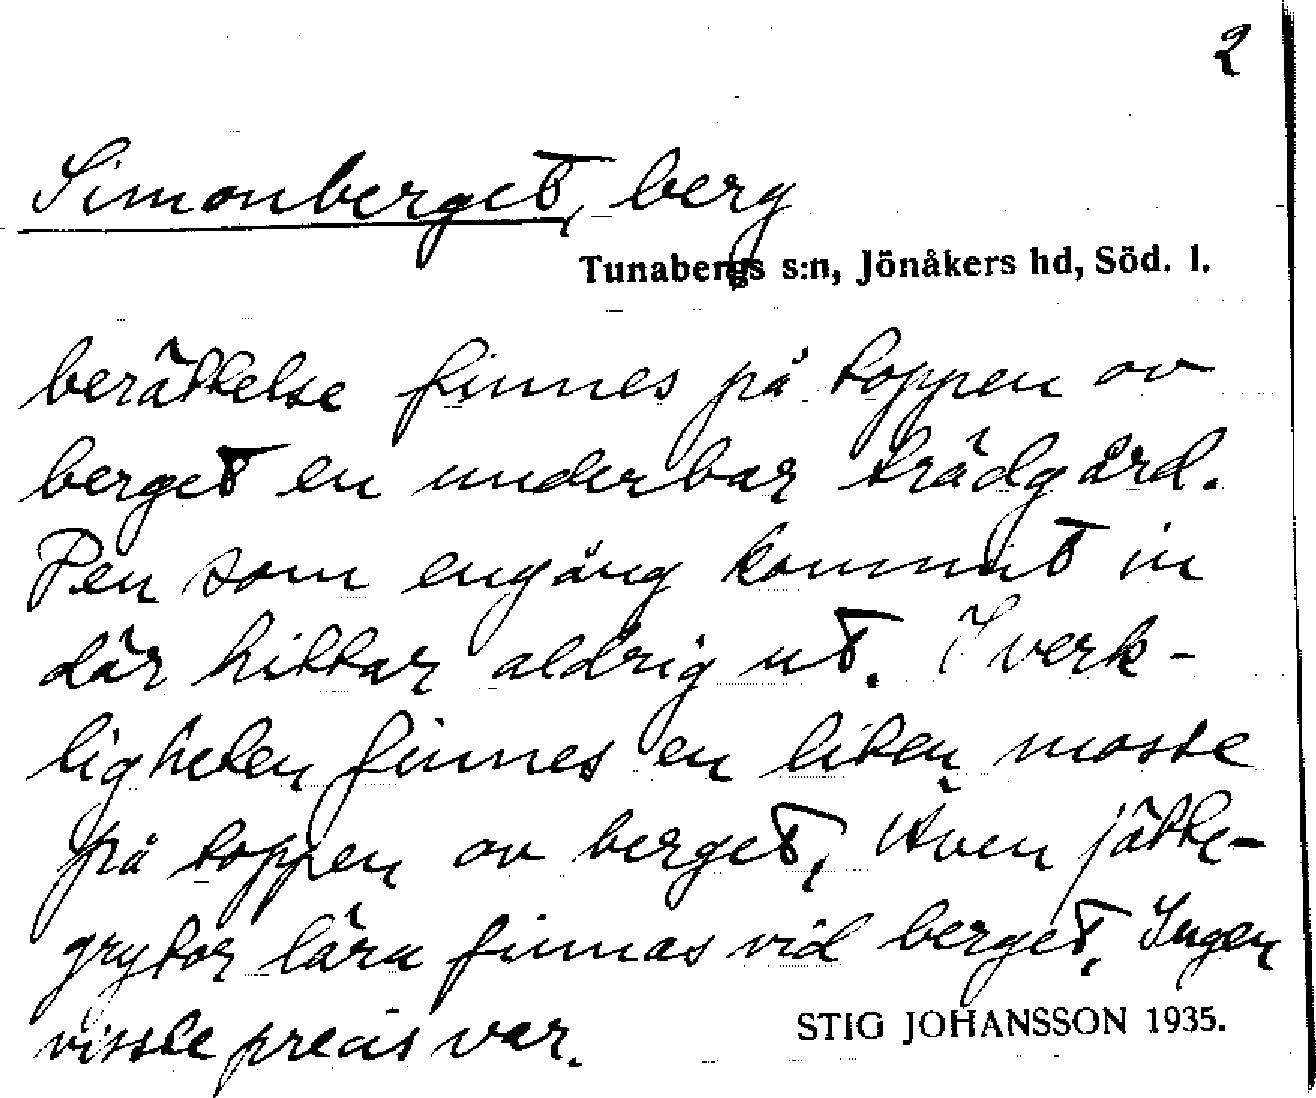 2
Simonberget, berg
Tunabergs s:n, Jönåkers hd, Söd. l.
berättelse finnes på toppen av
berget en underbar trädgård.
Den som engång kommit in
där hittar aldrig ut. I verk-
ligheten finnes en liten mosse
på toppen av berget. Även jätte-
grytor lära finnas vid berget. Ingen
visste precis var.
STIG JOHANSSON 1935.